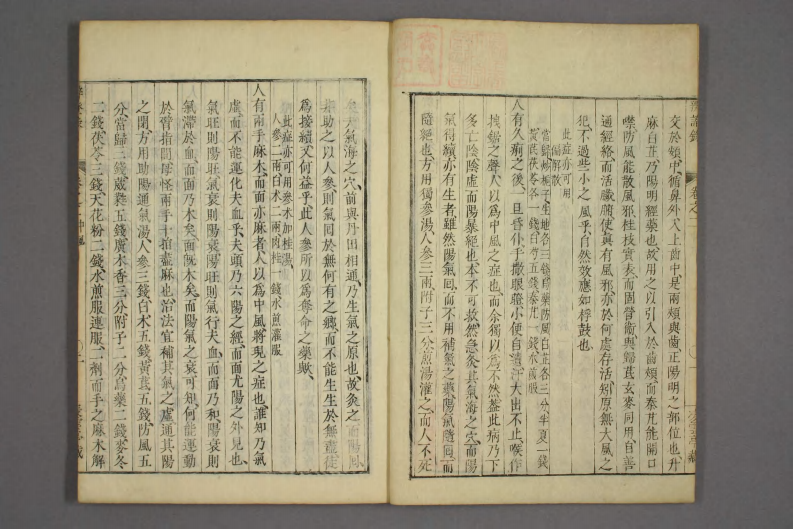 交於頞中、循鼻外、入上齒中是兩頰與齒正陽明之部位也、升
麻白芷乃陽明經藥也、故用之以引入於齒頰而秦艽能開口
噤防風能散風邪、桂枝實表而固營衞與歸芪玄參同用自善
通經絡而活臟腑使眞有風邪亦於何處存活、矧原無大風之
犯、不過些小之風乎、自然效應如桴鼓也、
此症亦可用
人有久痢之後、一旦昏仆手撒眼瞪小便自遺汗大出不止、喉作
拽鋸之聲人以爲中風之症也、而余獨以爲不然、蓋此病乃下
多亡陰陰虛而陽暴絕也、本不可救、然急灸其氣海之穴、而陽
氣得續亦有生者、雖然陽氣回而不用補氣之藥、陽氣隨回而
隨絕也、方用獨參湯人參三兩附子三分煎湯灌之而人不死
矣、夫氣海之穴、前與丹田相通、乃生氣之原也、故灸之而陽回、
非助之以人參則氣回於無何有之鄉、而不能生生於無盡、徒
爲接續又何益乎、此人參所以爲奪命之藥歟、
此症亦可用參朮加桂湯
人參二兩白朮二兩肉桂一錢水煎灌服
人有兩手麻木而面亦麻者、人以爲中風將現之症也、誰知乃氣
虛而不能運化夫血乎、夫頭乃六陽之經而面尤陽之外見也、
氣旺則陽旺氣衰則陽衰陽旺則氣行夫血而面乃和陽衰則
氣滯於血而面乃木矣、面旣木矣、而陽氣之衰可知、何能運動
於臂指間毋怪兩手十指盡麻也、治法宜補其氣之虛通其陽
之閉、方用助陽通氣湯人參三錢白朮五錢黃芪五錢防風五
分、當歸三錢葳蕤五錢廣木香三分附子二分烏藥二錢麥冬
二錢茯苓三錢天花粉二錢水煎服連服二劑而手之麻木解